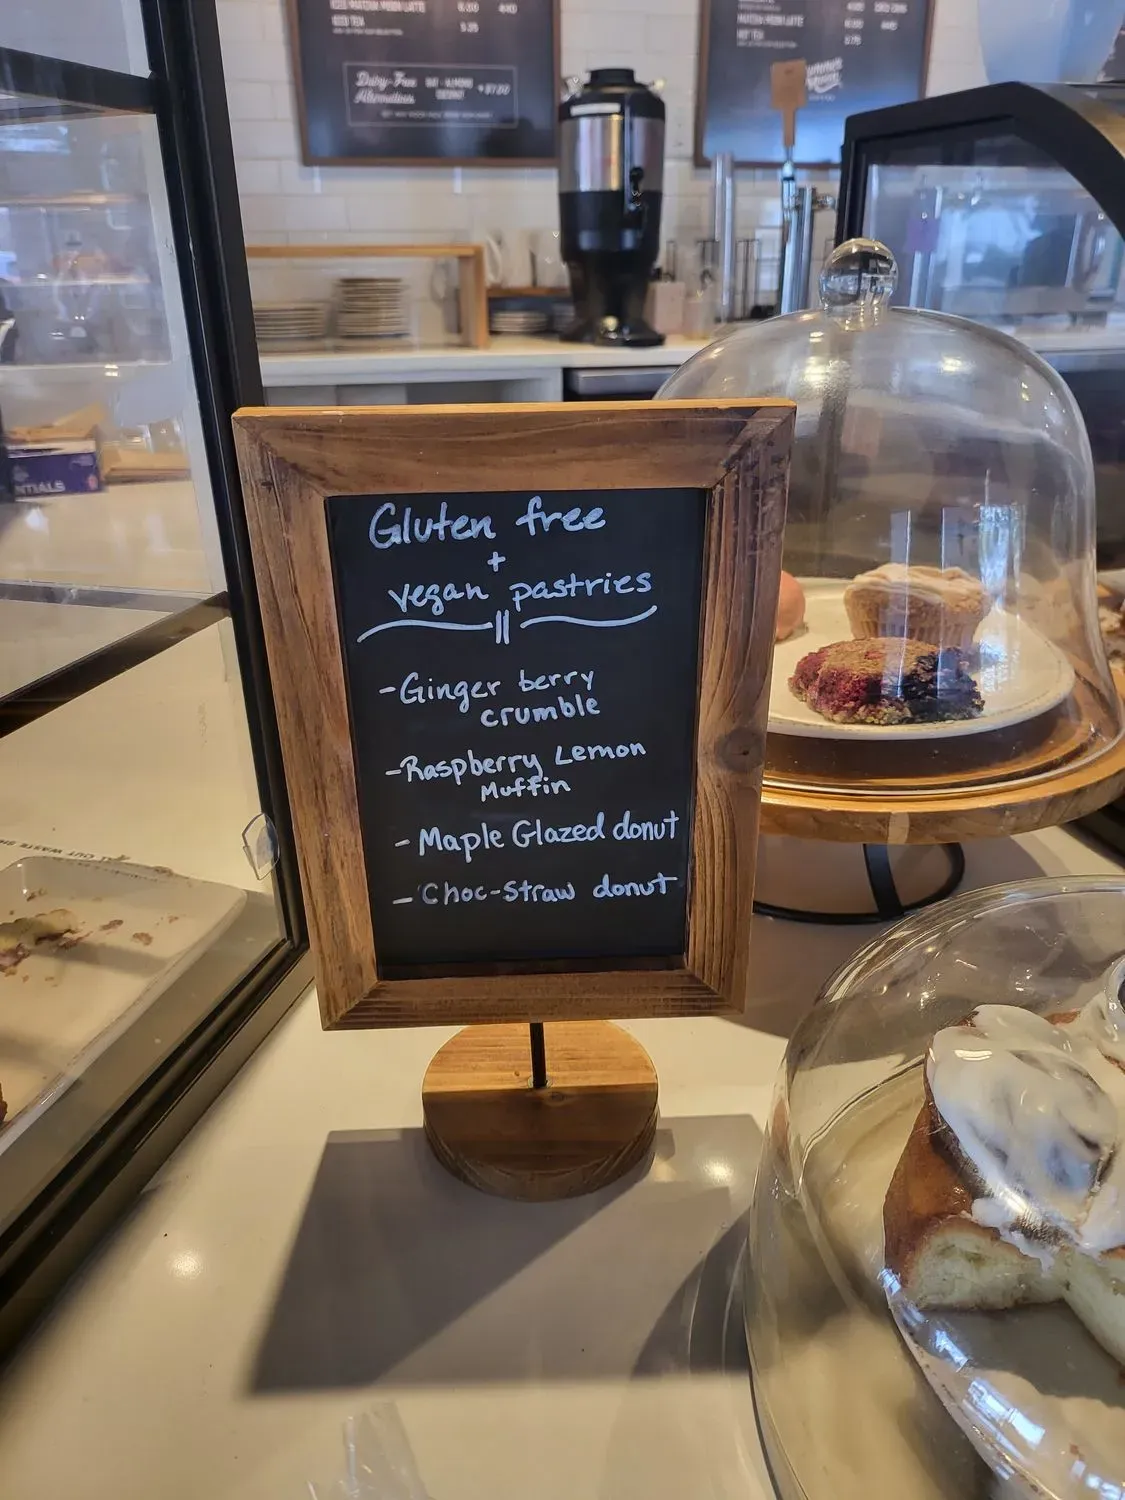 ICED MATCHA MOON LATTE 6.00 4HD
ICED TEA 5.25
Dairy-Free
Alternatives
OAT · ALMOND
COCONUT
MATCHA MOON LATTE
HOT TEA
NTIALS
Gluten free
+
vegan pastries
-Ginger berry
crumble
-Raspberry Lemon
Muffin
- Maple Glazed donut
- Choc-Straw donut